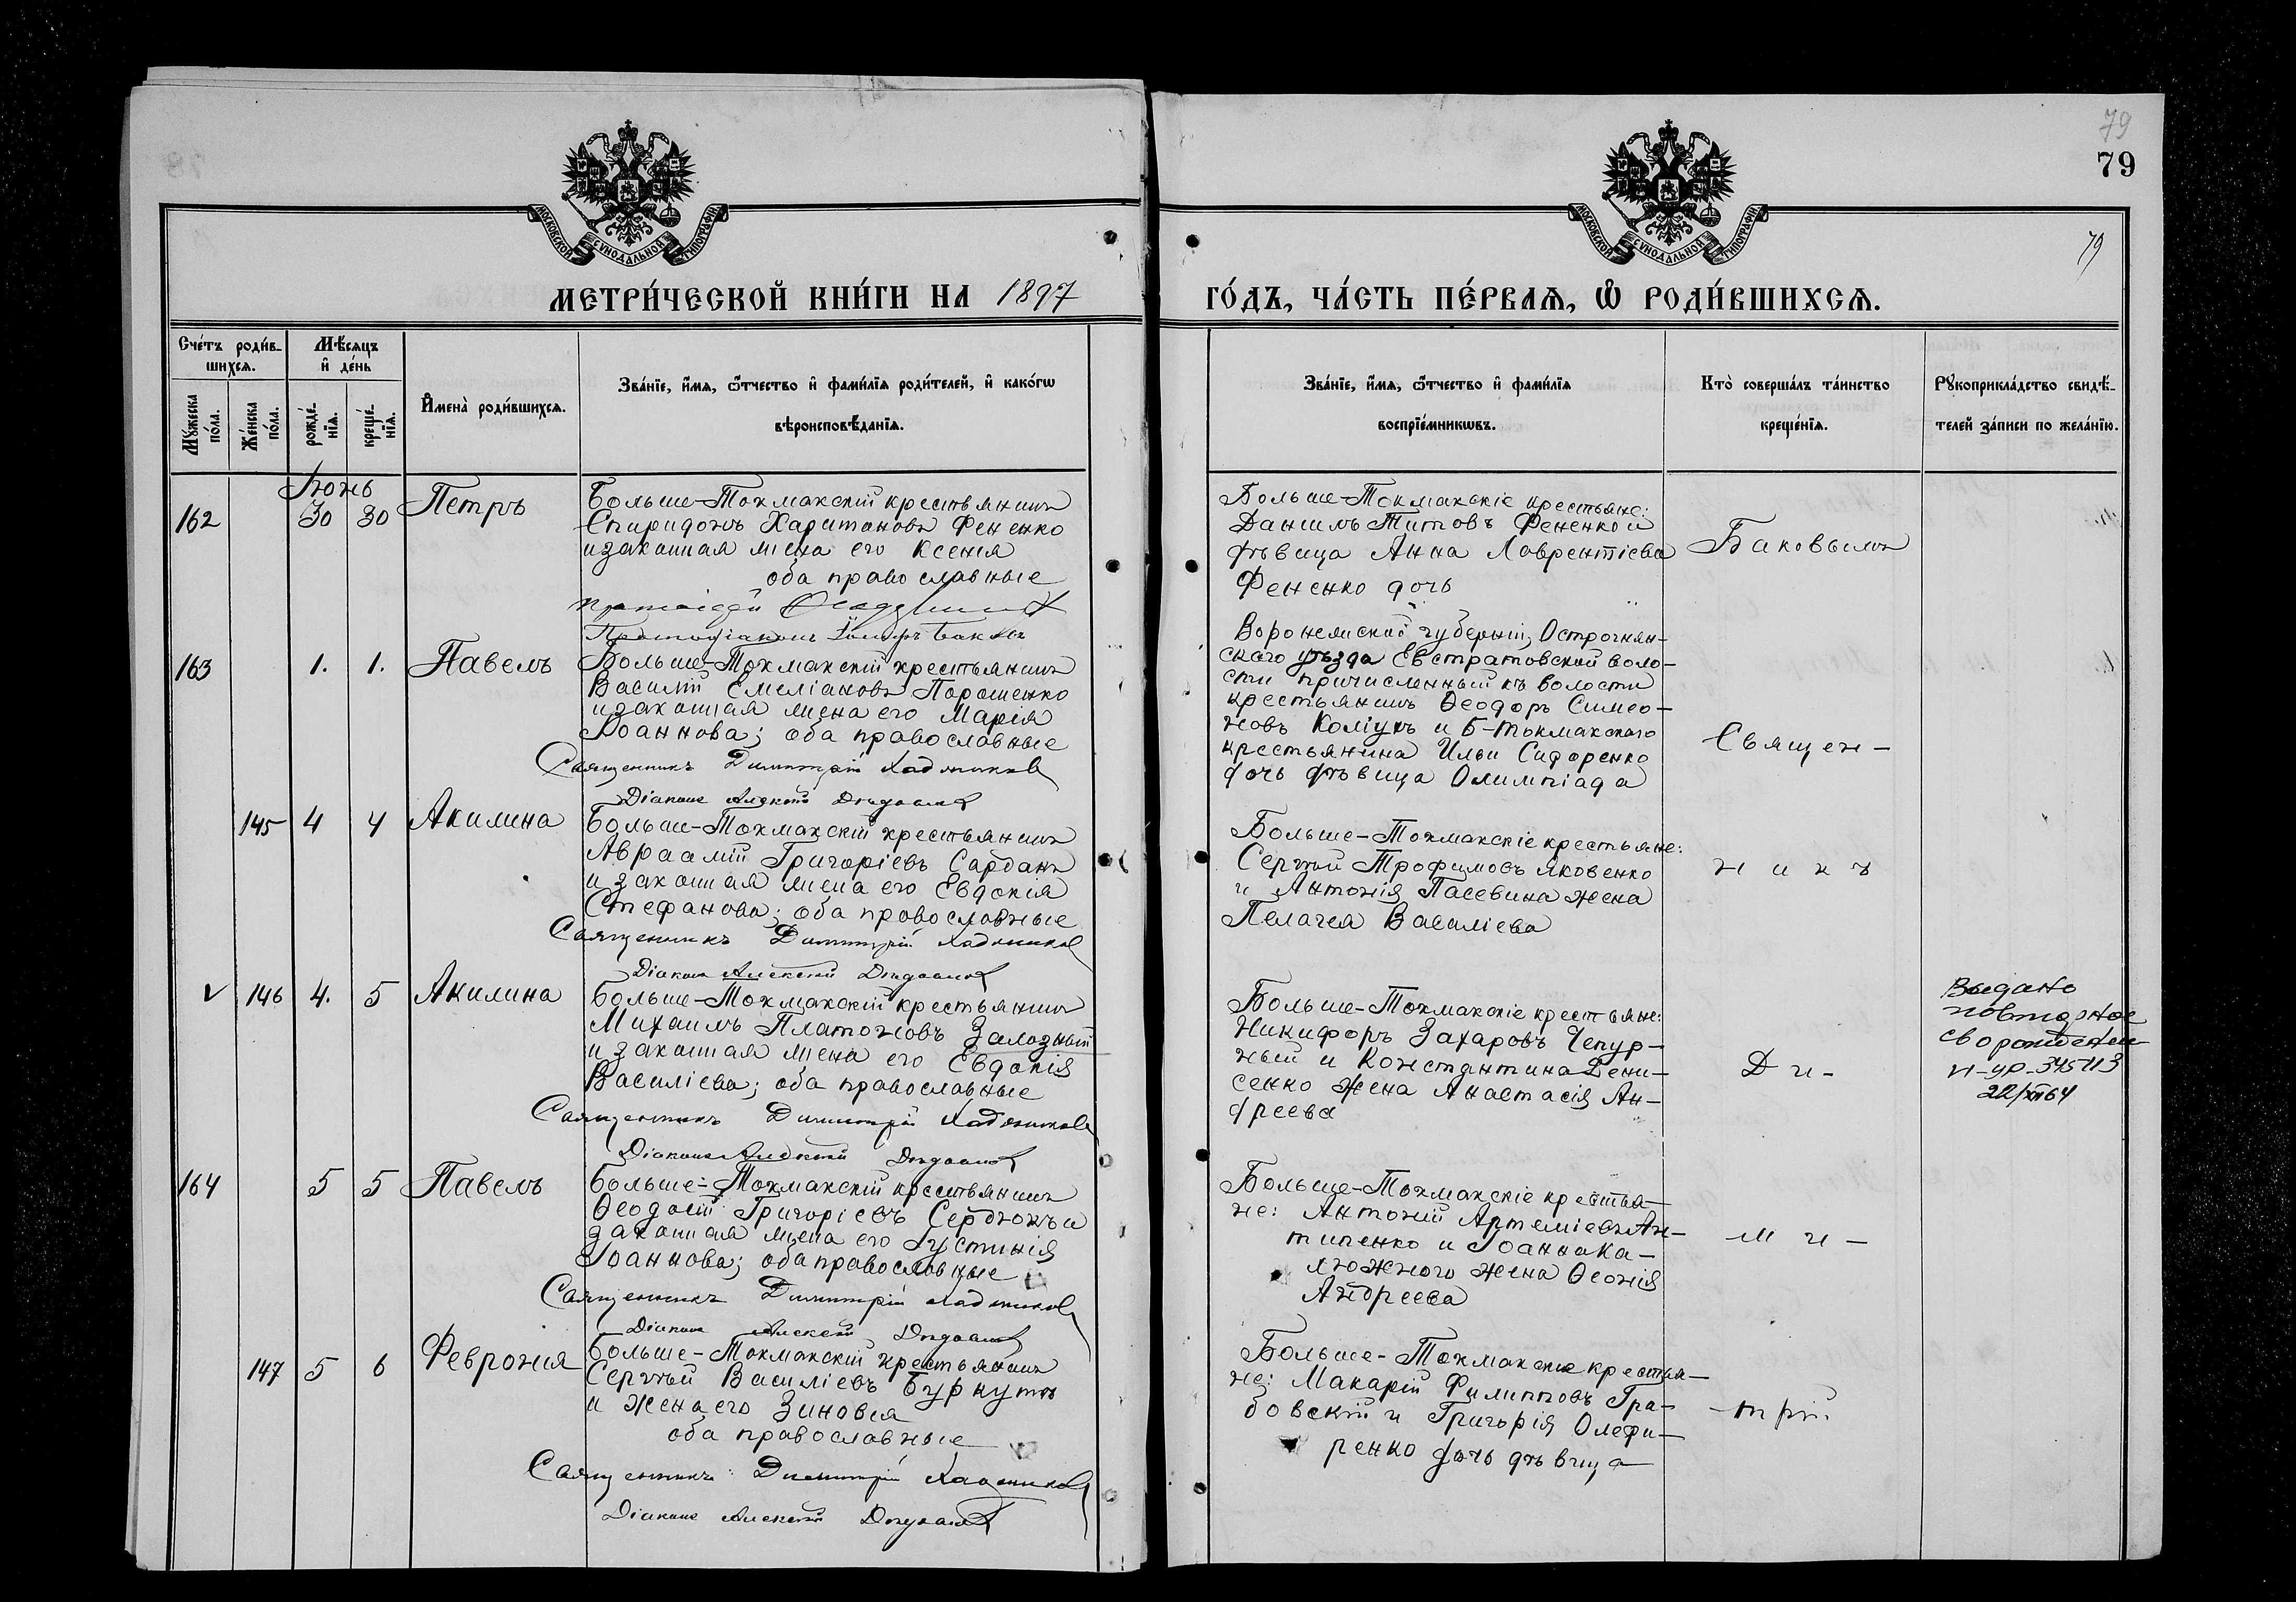 79
79
79
МОСКОВСКОЙ СѴНОДАЛЬНОЙ ТИПОГРАФІИ
МОСКОВСКОЙ СѴНОДАЛЬНОЙ ТИПОГРАФІИ
МЕТРИ́ЧЕСКОЙ КНИ́ГИ НА 1897
ГО́ДЪ, ЧА́СТЬ ПЕ́РВАѦ, Ѽ РОДИ́ВШИХСѦ.
Сче́тъ роди́в-
шихсѧ.
Мѣ́сѧцъ
и҆ де́нь
Мꙋ́жеска
по́ла.
Же́нска
по́ла.
рожде́-
нїѧ.
креще́-
нїѧ.
И҆мена̀ роди́вшихсѧ.
Зва́нїе, и҆́мѧ, ѿтчество и҆ фами́лїѧ роди́телей, и҆ како́гѡ
вѣроисповѣ́данїѧ.
Зва́нїе, и҆́мѧ, ѿтчество и҆ фами́лїѧ
воспрїе́мникѡвъ.
Кто̀ соверша́лъ та́инство
креще́нїѧ.
Рꙋкоприкла́дство свидѣ́-
телей за́писи по жела́нїю.
Іюнь
162
30 30
Петръ
Больше-Токмакскій крестьянинъ
Спиридонъ Харитановъ Фененко
и законная жена его Ксенія
оба православные
Больше-Токмакскіе крестьяне:
Даніилъ Титовъ Фененко и
дѣвица Анна Лаврентіева
Фененко дочь
Баковымъ
163 1. 1.
Павелъ
Больше-Токмакскій крестьянинъ
Василій Емеліановъ Порошенко
и законная жена его Марія
Іоаннова; оба православные
Священникъ Димитрій
Діаконъ Алексій
Воронежской губерніи, Острогжан-
скаго уѣзда Евстратовской воло-
сти причисленный къ волости
крестьянинъ Ѳеодоръ Симео-
новъ Коліухъ и Б-Токмакскаго
крестьянина Ильи Сидоренко
дочь дѣвица Олимпіада
Священ-
145 4 4
Акилина
Больше-Токмакскій крестьянинъ
Авраамій Григоріевъ Сардакъ
и законная жена его Евдокія
Стефанова; оба православные
Священникъ Димитрій
Діаконъ Алексій
Больше-Токмакскіе крестьяне:
Сергѣй Трофимовъ Яковенко
и Антонія Пасевина жена
Пелагея Василіева
никъ
V 146 4. 5
Акилина
Больше-Токмакскій крестьянинъ
Михаилъ Платоновъ Залозный
и законная жена его Евдокія
Василіева; оба православные
Священникъ Димитрій
Діаконъ Алексій
Больше-Токмакскіе крестьяне:
Никифоръ Захаровъ Чепур-
ный и Константина Дени-
сенко жена Анастасія Ан-
дреева
Ди-
Выдано
повторное
св о рождении
22/XII 64
164 5 5
Павелъ
Больше-Токмакскій крестьянинъ
Ѳеодосій Григоріевъ Сердюкъ и
законная жена его Іустинія
Іоаннова; оба православные
Священникъ Димитрій
Діаконъ Алексій
Больше-Токмакскіе крестья-
не: Антоній Артеміевъ Ан-
типенко и Іоанна Ка-
люжного жена Ѳеонія
Андреева
ми-
147 5 6
Февронія
Больше-Токмакскій крестьянинъ
Сергѣй Василіевъ Буркутъ
и жена его Зиновія
оба православные
Священникъ Димитрій
Діаконъ Алексій
Больше-Токмакскіе крестья-
не: Макарій Филипповъ Гра-
бовскій и Григорія Олефи-
ренко дочь дѣвица
-трій